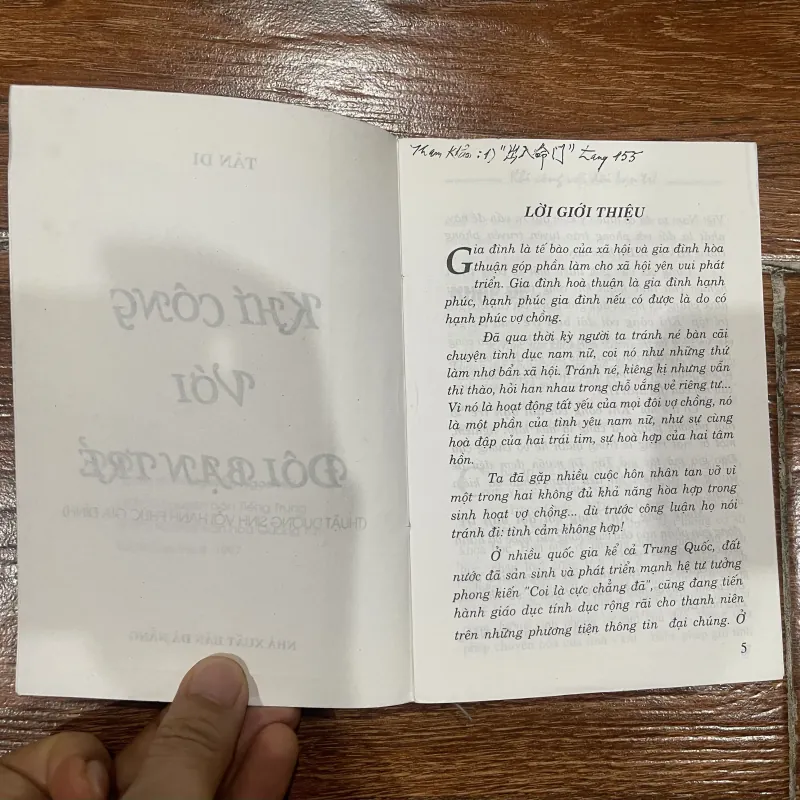 TÂN DI
KHÍ CÔNG
VỚI
ĐÔI BẠN TRẺ
(THUẬT DƯỠNG SINH VỚI HẠNH PHÚC GIA ĐÌNH)
NHÀ XUẤT BẢN ĐÀ NẴNG
Tham Khảo : 1) "出入命门" trang 155
LỜI GIỚI THIỆU
Gia đình là tế bào của xã hội và gia đình hòa
thuận góp phần làm cho xã hội yên vui phát
triển. Gia đình hoà thuận là gia đình hạnh
phúc, hạnh phúc gia đình nếu có được là do có
hạnh phúc vợ chồng.
Đã qua thời kỳ người ta tránh né bàn cãi
chuyện tình dục nam nữ, coi nó như những thứ
làm nhơ bẩn xã hội. Tránh né, kiêng kị nhưng vẫn
thì thào, hỏi han nhau trong chỗ vắng vẻ riêng tư...
Vì nó là hoạt động tất yếu của mọi đôi vợ chồng, nó
là một phần của tình yêu nam nữ, như sự cùng
hoà đập của hai trái tim, sự hoà hợp của hai tâm
hồn.
Ta đã gặp nhiều cuộc hôn nhân tan vỡ vì
một trong hai không đủ khả năng hòa hợp trong
sinh hoạt vợ chồng... dù trước công luận họ nói
tránh đi: tình cảm không hợp!
Ở nhiều quốc gia kể cả Trung Quốc, đất
nước đã sản sinh và phát triển mạnh hệ tư tưởng
phong kiến "Coi là cực chẳng đã", cũng đang tiến
hành giáo dục tính dục rộng rãi cho thanh niên
trên những phương tiện thông tin đại chúng. Ở
5